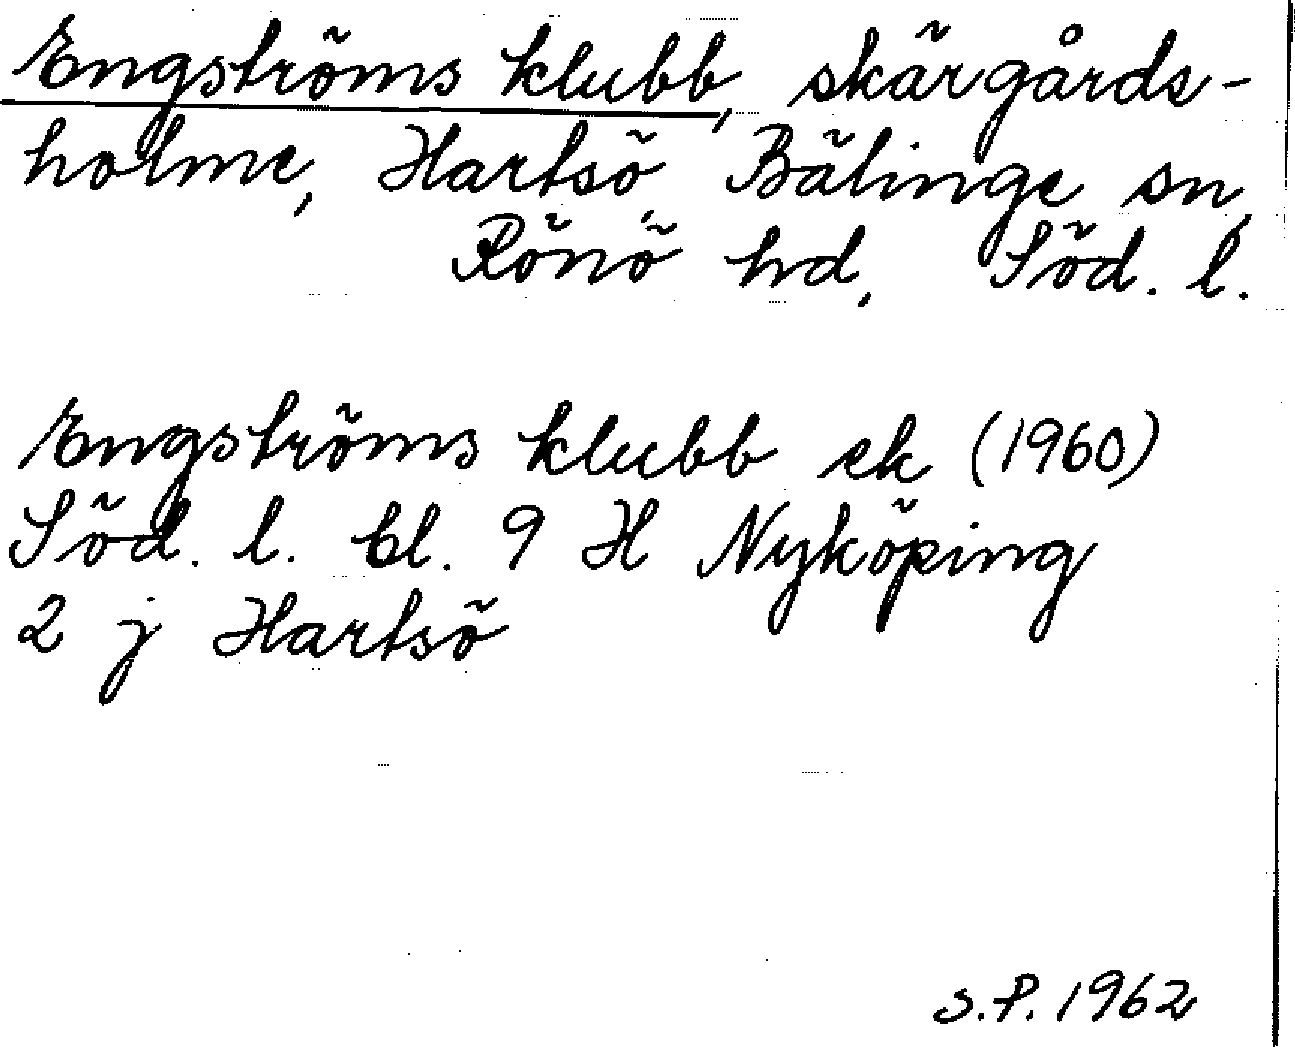 Engströms klubb, skärgårds-
holme, Hartsö, Bälinge sn,
Rönö hd, Söd. l.
Engströms klubb ek (1960)
Söd. l. bl. 9 H Nyköping
2 j Hartsö
S.P. 1962